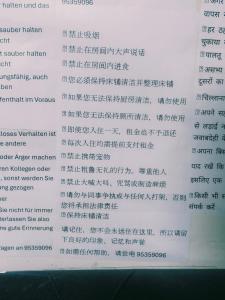 95359096
halten und das
sauber halten
cht sauber halten
cht
ngsfähig, auch
fenthalt im Voraus
loses Verhalten ist
e andere
oder Ärger machen
ren Kollegen oder
, sonst werden Sie
ung gezogen
er
Sie nicht für immer
terlassen Sie also
ns gute Erinnerung
ragen an 95359096
禁止吸烟
禁止在房间内大声说话
禁止在房间内进食
您必须保持床铺清洁并整理床铺
如果您无法保持厨房清洁，请勿使用
如果您无法保持厕所清洁，请勿使用
即使您入住一天，租金也不予退还
每次入住均需提前支付租金
禁止携带宠物
禁止粗鲁无礼的行为，尊重他人
禁止大喊大叫、咒骂或制造麻烦
请勿与同事争执或与任何人打架，否则
您将承担法律责任
保持床铺清洁
请记住，您不会永远住在这里，所以请留
下良好的印象、记忆和声誉
如需任何帮助，请致电 95359096
वापस
हर
चुकाया
पालतू
असभ्य
दूसरों का
चिल्लाना
अपने
से लड़ाई
जवाबदेही
अपना बि
याद रखें कि
इसलिए एक
किसी भी
संपर्क करें